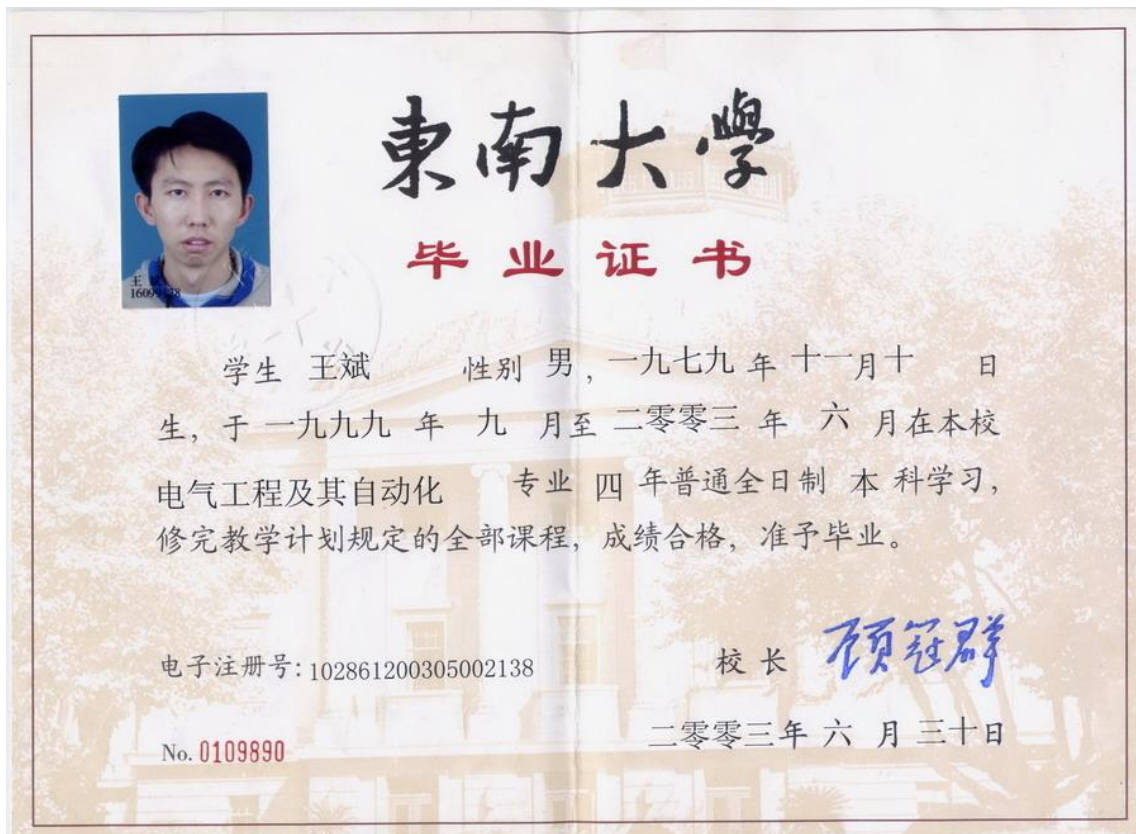 東南大學
毕业证书
王斌
学生 王斌 性别 男，一九七九 年 十一月十 日
生，于 一九九九 年 九 月至 二零零三 年 六 月在本校
电气工程及其自动化 专业 四 年普通全日制 本 科学习，
修完教学计划规定的全部课程，成绩合格，准予毕业。
电子注册号：102861200305002138
校长 顾冠群
No. 0109890
二零零三年 六 月 三十日